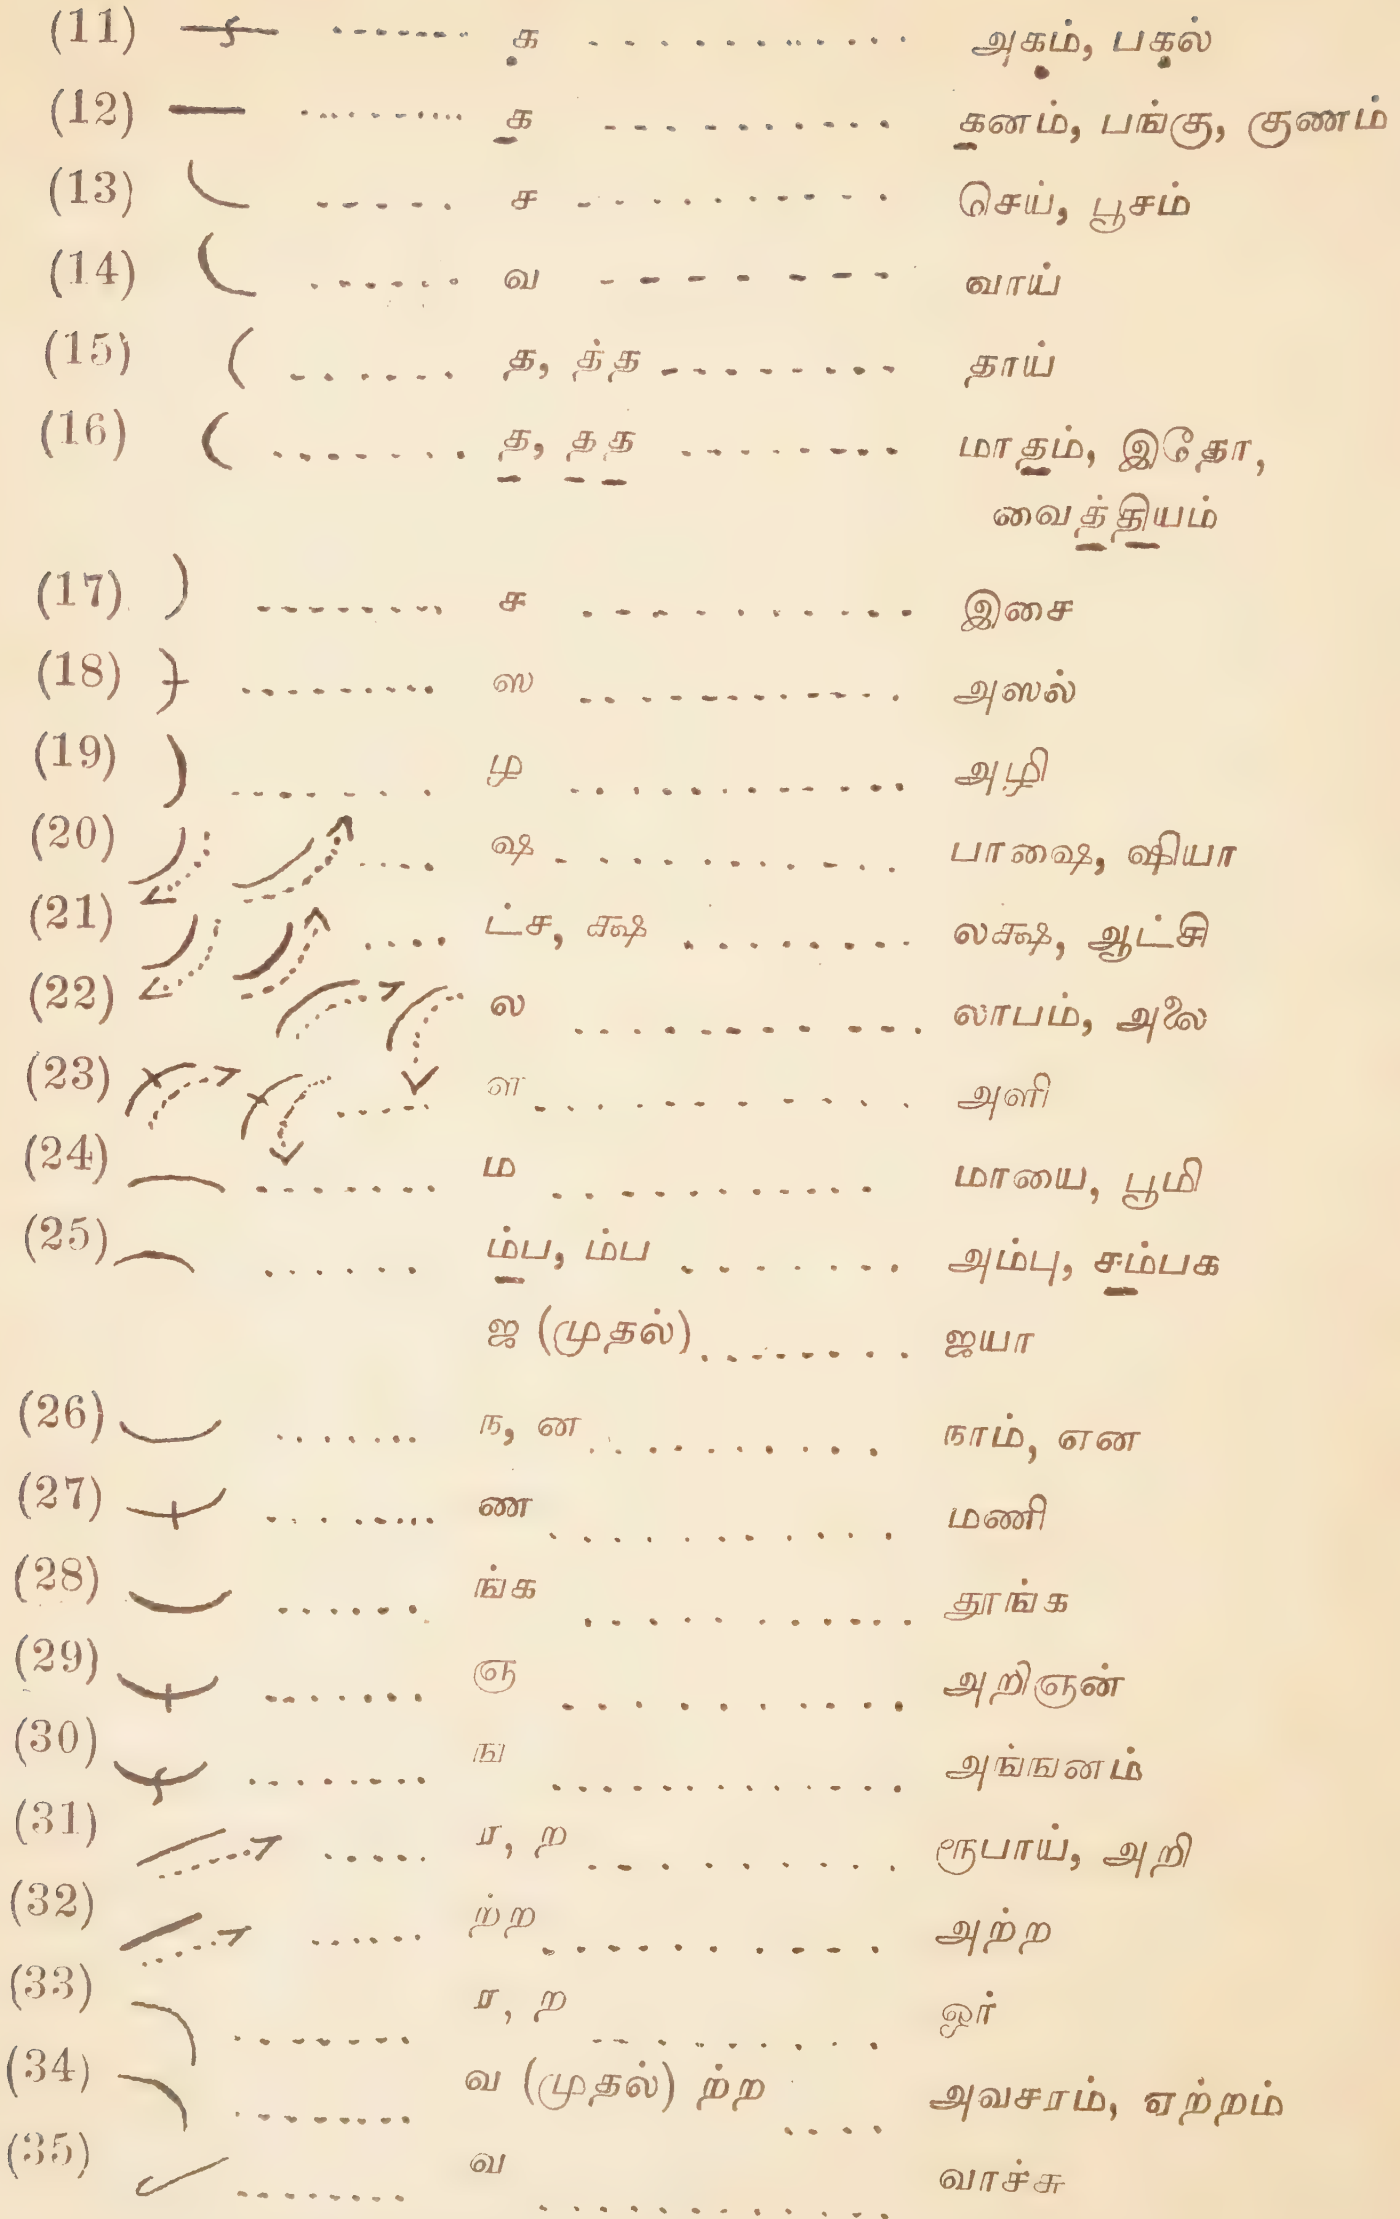 (11) க அகம், பகல்
(12) க கனம், பங்கு, குணம்
(13) ச செய், பூசம்
(14) வ வாய்
(15) த, த்த தாய்
(16) த, தத மாதம், இதோ,
வைத்தியம்
(17) ச இசை
(18) ஸ அஸல்
(19) ழ அழி
(20) ஷ பாஷை, ஷியா
(21) ட்ச, க்ஷ லக்ஷ, ஆட்சி
(22) ல லாபம், அலை
(23) ள அளி
(24) ம மாயை, பூமி
(25) ம்ப, ம்ப அம்பு, சம்பக
ஜ (முதல்) ஜயா
(26) ந, ன நாம், என
(27) ண மணி
(28) ங்க தூங்க
(29) ஞ அறிஞன்
(30) ங அங்ஙனம்
(31) ர, ற ரூபாய், அறி
(32) ற்ற அற்ற
(33) ர, ற ஓர்
(34) வ (முதல்) ற்ற அவசரம், ஏற்றம்
(35) வ வாச்சு